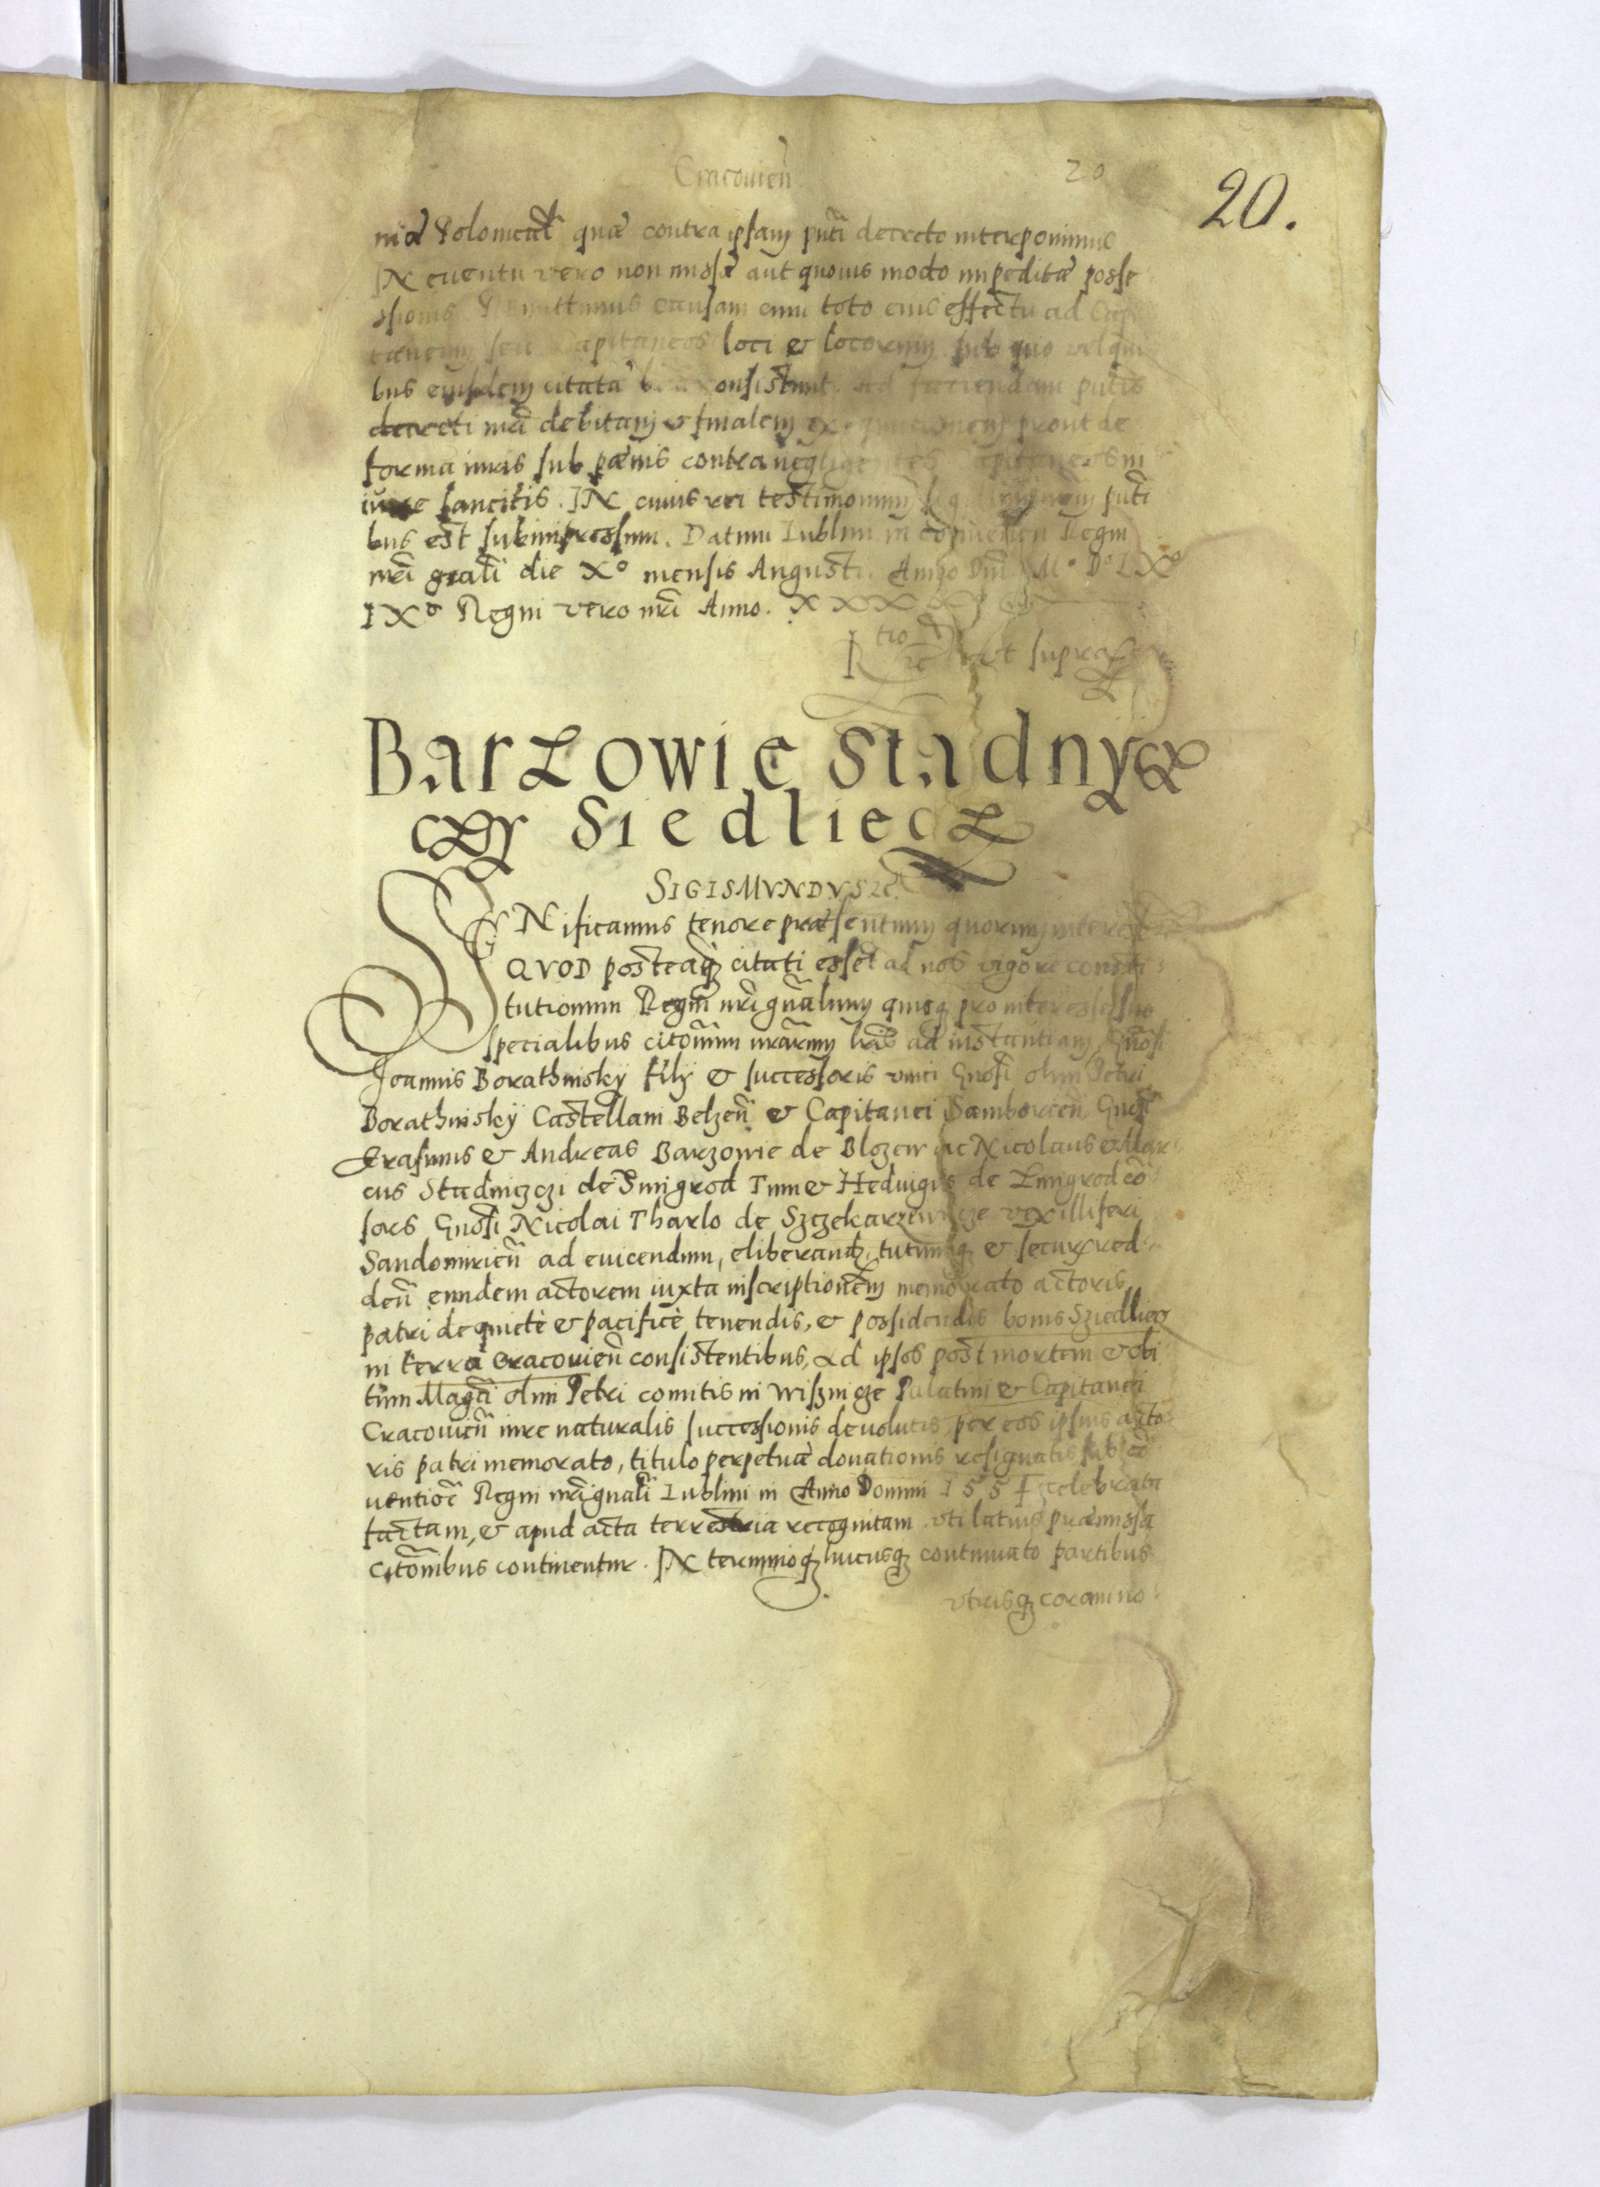 Cracouień
20
20.
niæ Polonicał quæ contra ipsam pnti decreto interponimus
IN euentu vero non missæ aut quouis modo impeditæ posse
ssionis Remittimus causam cum toto eius effectu ad Capi
taneum seu Capitaneos loci & locorum sub quo vel qui
bus eiusdem citatæ bona consistunt. Ad faciendam pntis
decreti nri debitam & finalem exequutionem prout de
forma iuris sub pœnis contra negligentes Capitaneos in
iure sancitis. IN cuius rei testimonium sigillum nrm pnti
bus est subimpressum. Datum Lublini in conuentu Regni
nri gñali die Xº mensis Augusti. Anno Dni Mº Dº LXº
IXº Regni vero nri Anno. XXXX
Rtio ut supra
Barzowie Stadny
czy Siedliecz
SIGISMVNDVS zc.
SigNificamus tenore præsentium quorum interest
QVOD posteaq citati essēt ad nos vigore consti
tutionum Regni nri gñalium quisq pro interesse suo
specialibus citōnum nrarum lris ad instantiam Gñosi
Joannis Borathinsky filij & successoris vnici Gnosi olim Petri
Borathinskÿ Castellani Belzeñ & Capitanei Samborień Gnosi
Erasmus & Andreas Barzowie de Blozew ac Nicolaus & Mar
cus Stadniczczi de Smigrod Tum & Hedwigis de Zmigrod cō
sors Gnosi Nicolai Tharlo de Szczekarzewicze vexilliferi
Sandomirień ad euicendum, eliberand, tutumq & secur red
deñ eundem actorem iuxta inscriptionem memorato actoris
patri de quietè & pacificè tenendis, & possidendis bonis Sziedliec
in terra Cracouień consistentibus, Ad ipsos post mortem & obi
tum Magci olim Petri comitis in Wisznicze Palatini & Capitanei
Cracouień iure naturalis successionis deuolutis, per eos ipsius acto
ris patri memorato, titulo perpetuæ donationis resignatis sub cō
uentiōe Regni nri gnali Lublini in Anno Domini 1554 celebrata
factam, & apud acta terrestria recognitam. vti latius præmissa
citōnibus continentur. IN terminoq huicusq continuato partibus
vtrisq coram no